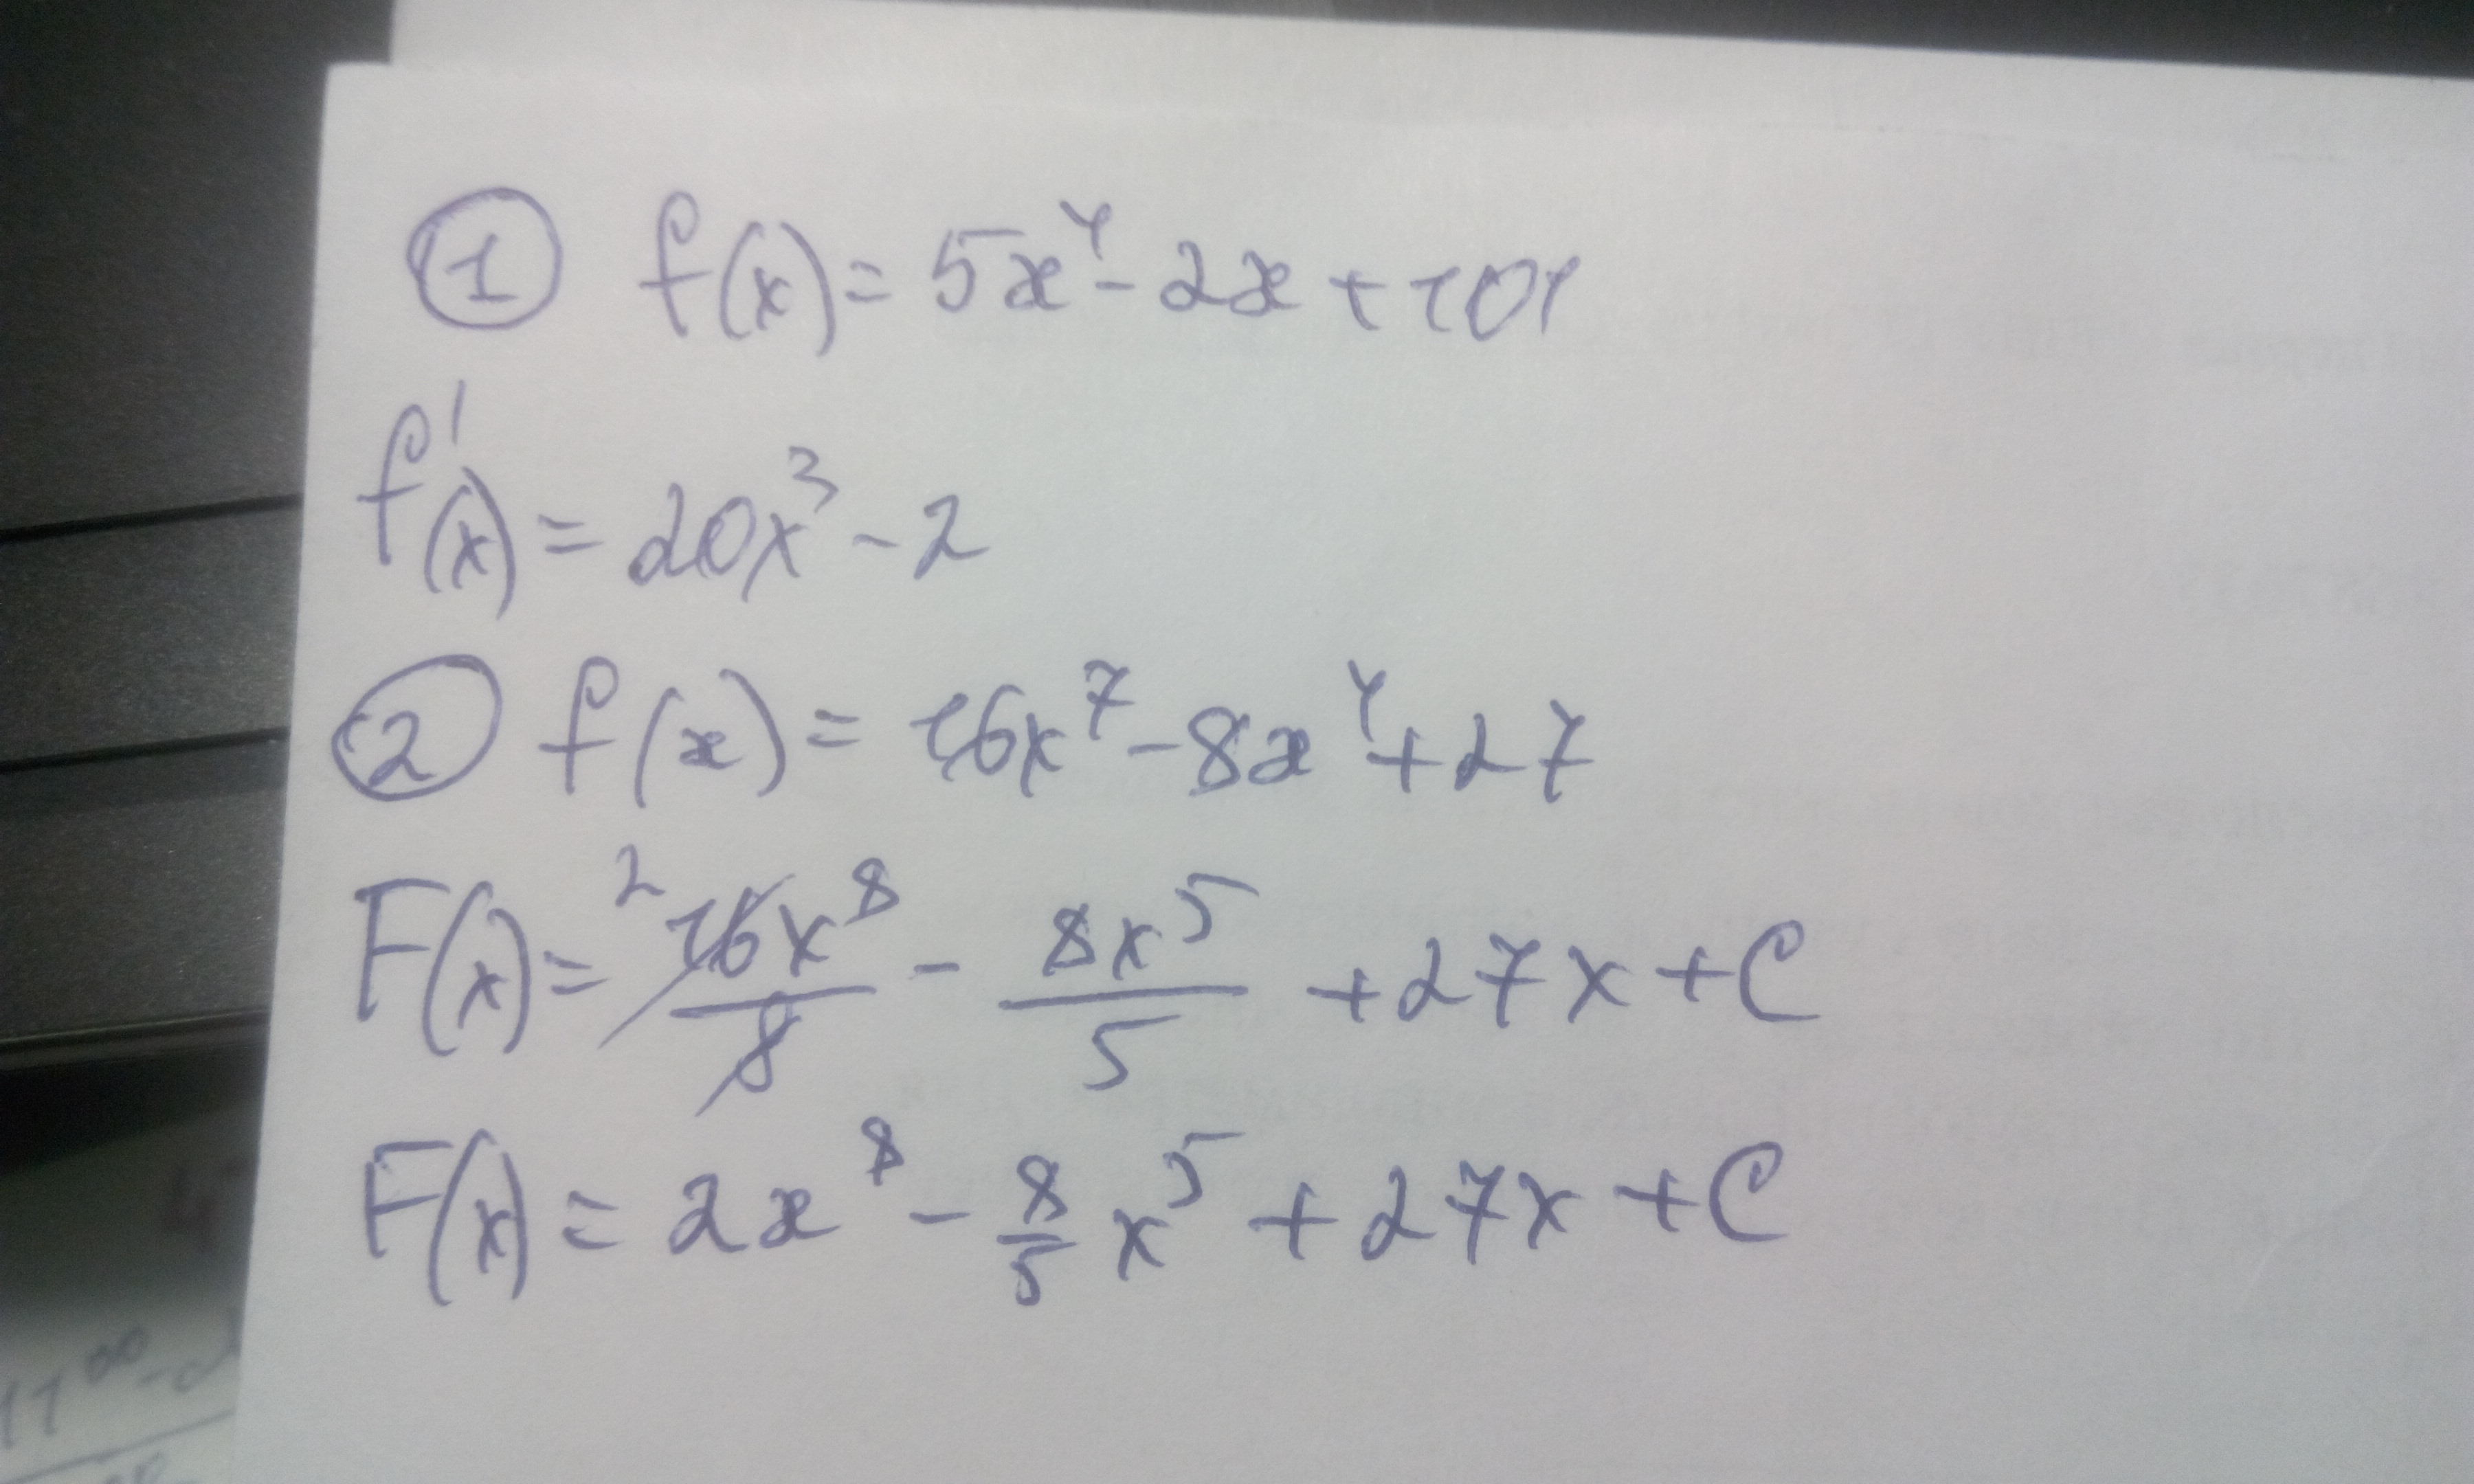 ① f(x) = 5x⁴ - 2x + 101
f'(x) = 20x³ - 2
② f(x) = 16x⁷ - 8x⁴ + 27
F(x) = ² 16x⁸/8 - 8x⁵/5 + 27x + C
F(x) = 2x⁸ - 8/5 x⁵ + 27x + C